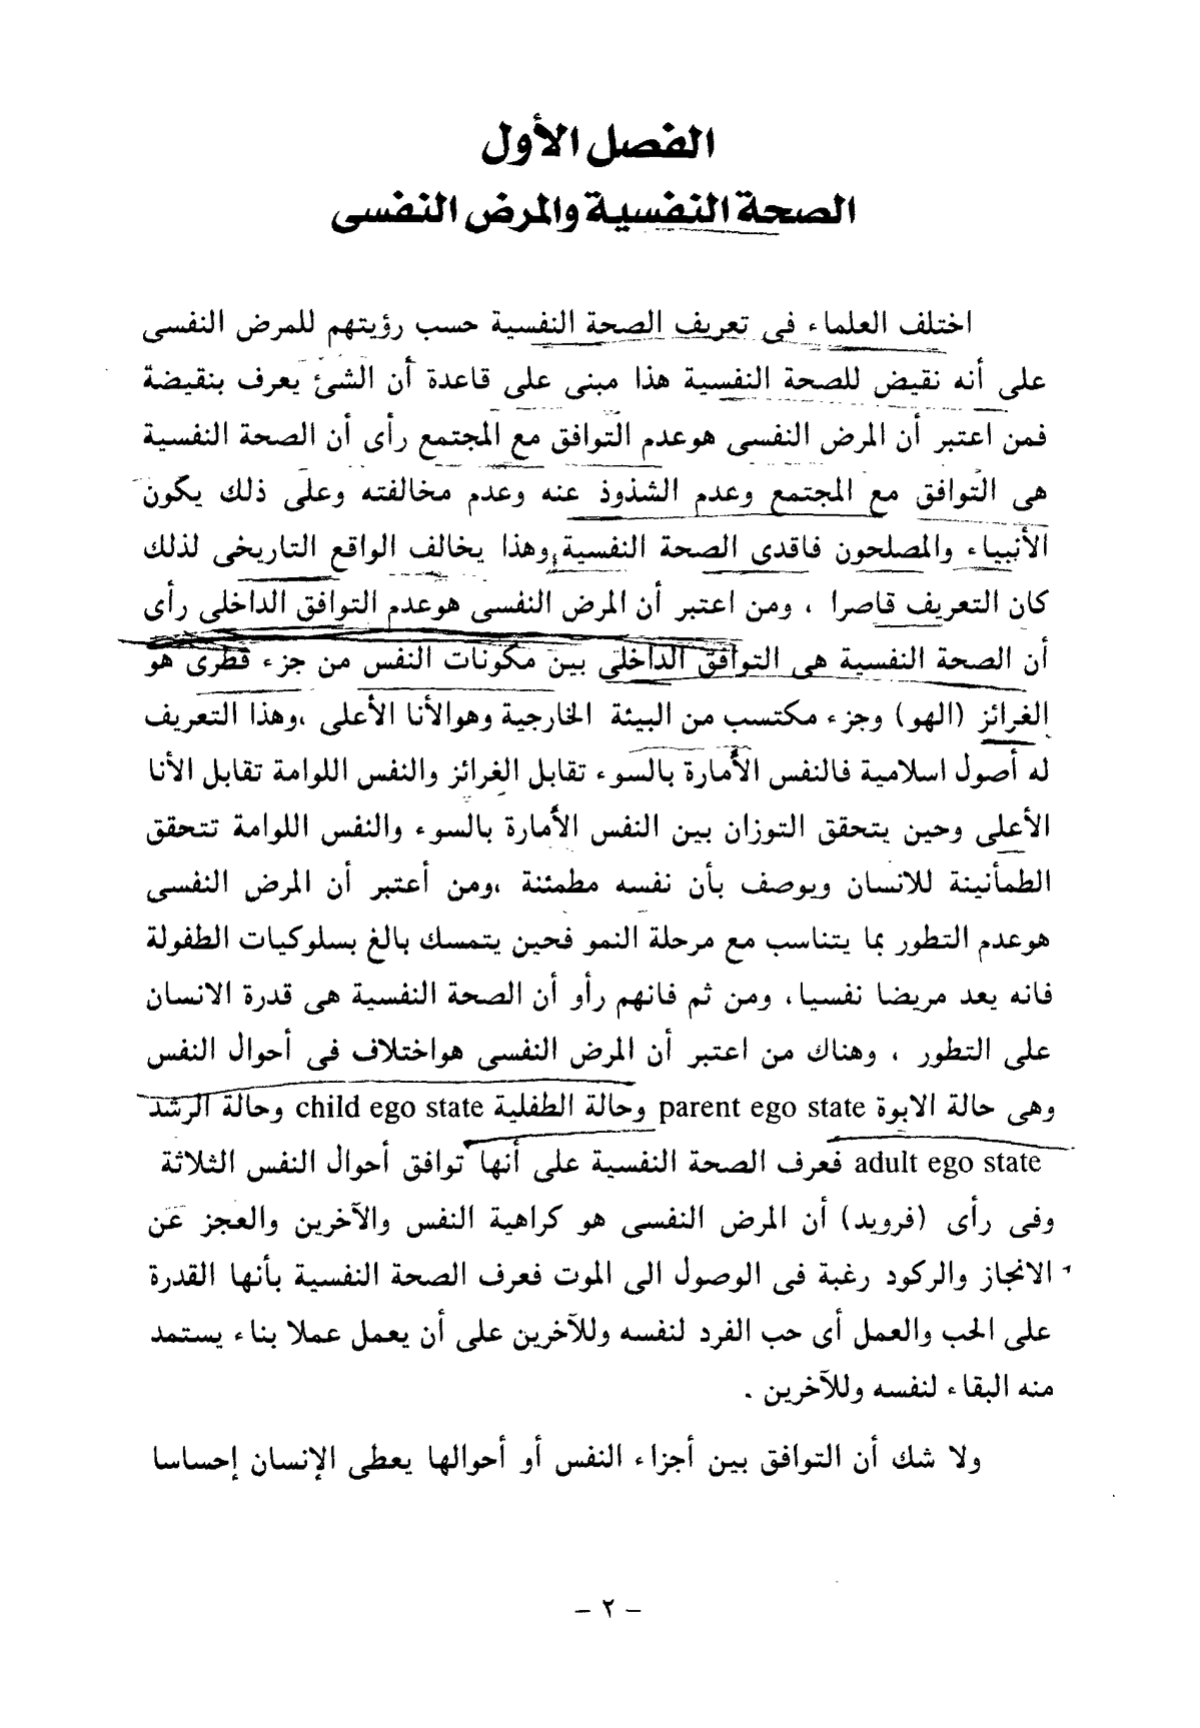 الفصل الأول
الصحة النفسية والمرض النفسى
اختلف العلماء فى تعريف الصحة النفسية حسب رؤيتهم للمرض النفسى
على أنه نقيض للصحة النفسية هذا مبنى على قاعدة أن الشئ يعرف بنقيضة
فمن اعتبر أن المرض النفسى هوعدم التوافق مع المجتمع رأى أن الصحة النفسية
هى التوافق مع المجتمع وعدم الشذوذ عنه وعدم مخالفته وعلى ذلك يكون
الأنبياء والمصلحون فاقدى الصحة النفسية,وهذا يخالف الواقع التاريخى لذلك
كان التعريف قاصرا ، ومن اعتبر أن المرض النفسى هوعدم التوافق الداخلى رأى
أن الصحة النفسية هى التوافق الداخلى بين مكونات النفس من جزء فطرى هو
الغرائز (الهو) وجزء مكتسب من البيئة الخارجية وهوالأنا الأعلى ،وهذا التعريف
له أصول اسلامية فالنفس الأمارة بالسوء تقابل الغرائز والنفس اللوامة تقابل الأنا
الأعلى وحين يتحقق التوزان بين النفس الأمارة بالسوء والنفس اللوامة تتحقق
الطمأنينة للانسان ويوصف بأن نفسه مطمئنة ،ومن أعتبر أن المرض النفسى
هوعدم التطور بما يتناسب مع مرحلة النمو فحين يتمسك بالغ بسلوكيات الطفولة
فانه يعد مريضا نفسيا، ومن ثم فانهم رأو أن الصحة النفسية هى قدرة الانسان
على التطور ، وهناك من اعتبر أن المرض النفسى هواختلاف فى أحوال النفس
وهى حالة الابوة parent ego state وحالة الطفلية child ego state وحالة الرشد
adult ego state فعرف الصحة النفسية على أنها توافق أحوال النفس الثلاثة
وفى رأى (فرويد) أن المرض النفسى هو كراهية النفس والآخرين والعجز عن
الانجاز والركود رغبة فى الوصول الى الموت فعرف الصحة النفسية بأنها القدرة
على الحب والعمل أى حب الفرد لنفسه وللآخرين على أن يعمل عملا بناء يستمد
منه البقاء لنفسه وللآخرين .
ولا شك أن التوافق بين أجزاء النفس أو أحوالها يعطى الإنسان إحساسا
– ٢ –